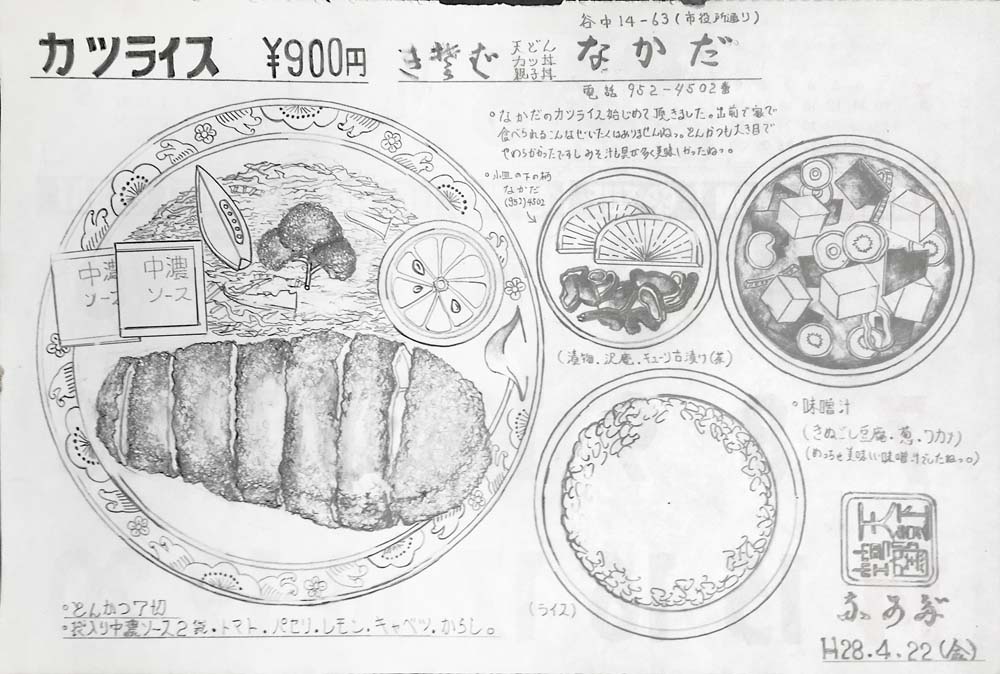 谷中14-63(市役所通り)
カツライス ¥900円 天どん カツ丼 親子丼 なかだ
電話 952-4502番
。なかだのカツライス始じめて頂きました。出前で家で
食べられるこんなぜいたくはありませんねっ。とんかつも大き目で
やわらかかったですしみそ汁も具が多く美味しかったねっ。
。小皿の下の柄
なかだ
(952)4502
中濃
ソース
中濃
ソース
(漬物.沢庵.キューリ古漬け(茶)
。味噌汁
(きぬごし豆腐.葱.ワカメ)
(めっちゃ美味しい味噌汁でしたねっ。)
(ライス)
。とんかつ7切
。袋入り中濃ソース2袋.トマト.パセリ.レモン.キャベツ.からし。
H28.4.22(金)